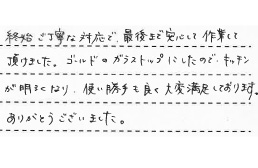 終始ご丁寧な対応で、最後まで安心して作業して
頂けました。ゴールドのガラストップにしたので、キッチン
が明るくなり、使い勝手も良く大変満足しております。
ありがとうございました。